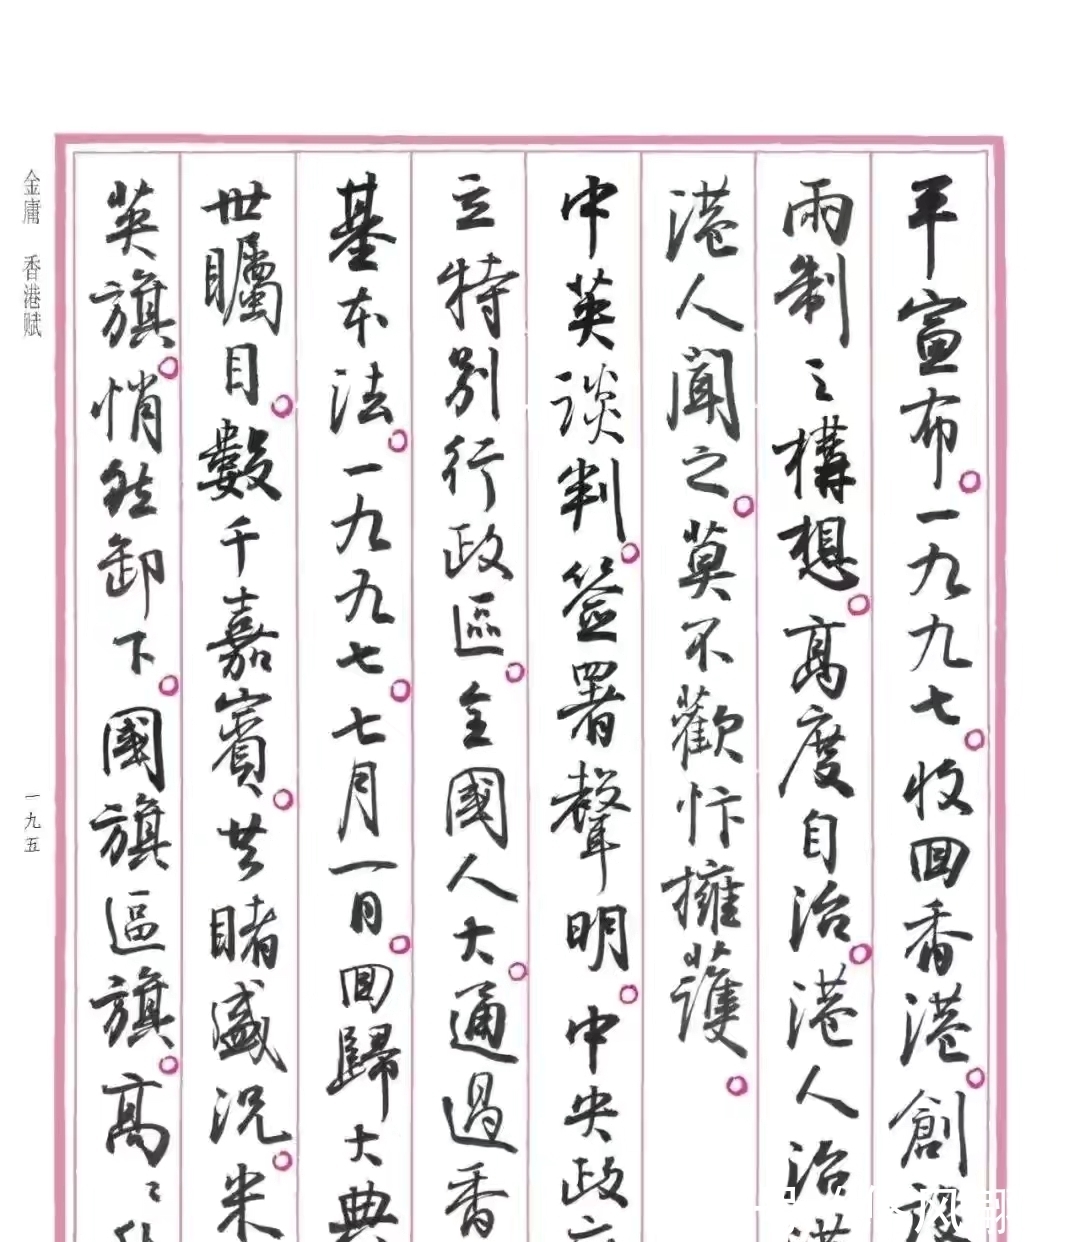 平宣布。一九九七。收回香港。創設
兩制之構想。高度自治。港人治港
港人聞之。莫不歡忭擁護。
中英談判。簽署聲明。中央政
立特別行政區。全國人大。通過香
基本法。一九九七。七月一日。回歸大典
世矚目。數千嘉賓。共睹盛況。米
英旗。悄然卸下。國旗區旗。高々
金庸 香港赋
一九五